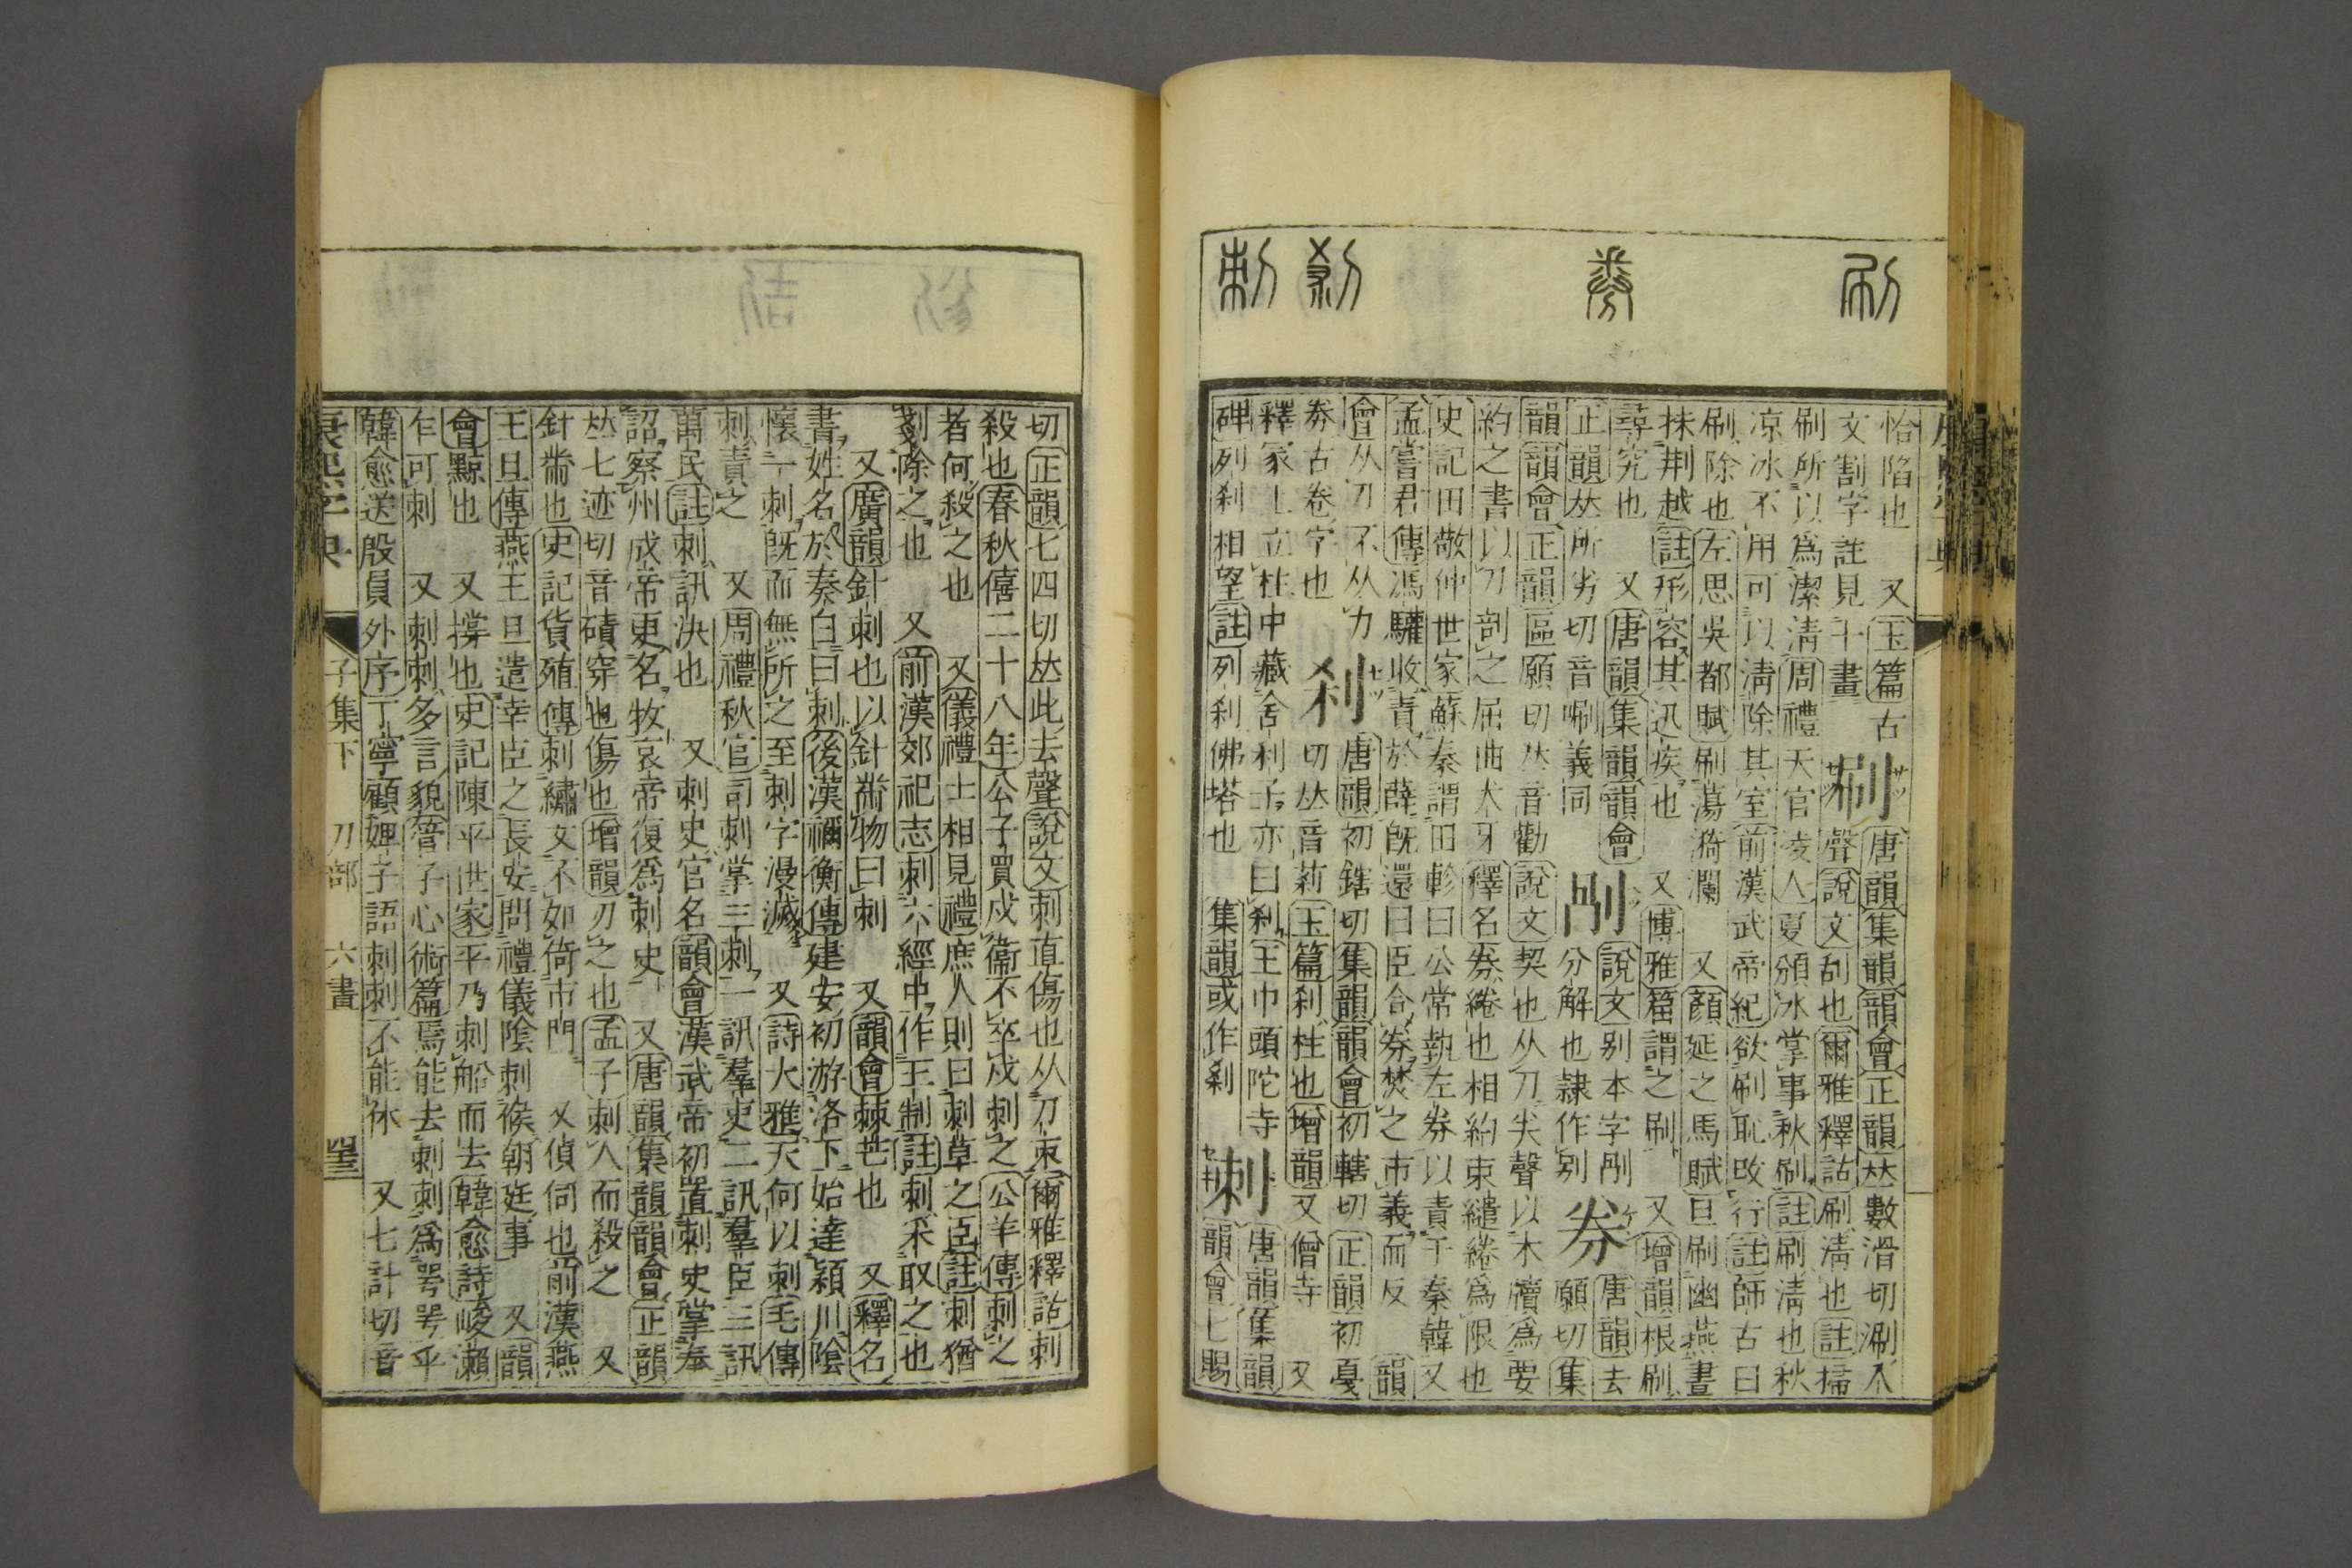 怡陷也　又玉篇古
文割字註見十畫
刷
唐韻集韻韻會正韻𠀤數滑切涮入
聲說文刮也爾雅釋詁刷淸也註掃
刷所以爲潔淸周禮天官凌人夏頒冰掌事秋刷註刷淸也秋
凉冰不用可以淸除其室前漢武帝紀欲刷恥改行註師古曰
刷除也左思吳都賦刷蕩漪瀾　又顏延之馬賦旦刷幽燕晝
抹荆越註形容其迅疾也　又博雅䈞謂之刷　又增韻根刷
尋究也　又唐韻集韻韻會
正韻𠀤所劣切音唰義同
剐
說文別本字刐
分解也隷作別
券
唐韻去
願切集
韻韻會正韻區願切𠀤音勸說文契也从刀𢍏聲以木牘爲要
約之書以刀剖之屈曲犬牙釋名券綣也相約束繾綣爲限也
史記田敬仲世家蘇秦謂田軫曰公常執左券以責于秦韓又
孟嘗君傳馮驩收責於薛旣還曰臣合券焚之市義而反　韻
會从刀不从力
券古卷字也
刹
唐韻初鎋切集韻韻會初轄切正韻初戞
切𠀤音𦵔玉篇刹柱也增韻又僧寺　又
釋家上立柱中藏舍利子亦曰刹王巾頭陀寺
碑列刹相望註列刹刹佛塔也　集韻或作剎
刺
唐韻集韻
韻會七賜
切正韻七四切𠀤此去聲說文刺直傷也从刀朿爾雅釋詁刺
殺也春秋僖二十八年公子買戍衞不卒戍刺之公羊傳刺之
者何殺之也　又儀禮士相見禮庶人則曰刺草之臣註刺猶
剗除之也　又前漢郊祀志刺六經中作王制註刺采取之也
又廣韻針刺也以針黹物曰刺　又韻會棘芒也　又釋名
書姓名於奏白曰刺後漢禰衡傳建安初游洛下始達穎川陰
懷一刺旣而無所之至刺字漫滅　又詩大雅天何以刺毛傳
刺責之　又周禮秋官司刺掌三刺一訊羣吏二訊羣臣三訊
萬民註刺訊決也　又刺史官名韻會漢武帝初置刺史掌奉
詔察州成帝更名牧哀帝復爲刺史　又唐韻集韻韻會正韻
𠀤七迹切音磧穿也傷也增韻刃之也孟子刺人而殺之　又
針黹也史記貨殖傳刺繡文不如倚市門　又偵伺也前漢燕
王旦傳燕王旦遣幸臣之長安問禮儀陰刺候朝廷事　又韻
會黥也　又撐也史記陳平世家平乃刺船而去韓愈詩崚瀨
乍可刺　又刺刺多言貌管子心術篇焉能去刺刺爲咢咢乎
韓愈送殷員外序丁寧顧婢子語刺刺不能休　又七計切音
康熙字典　子集下　刀部　六畫